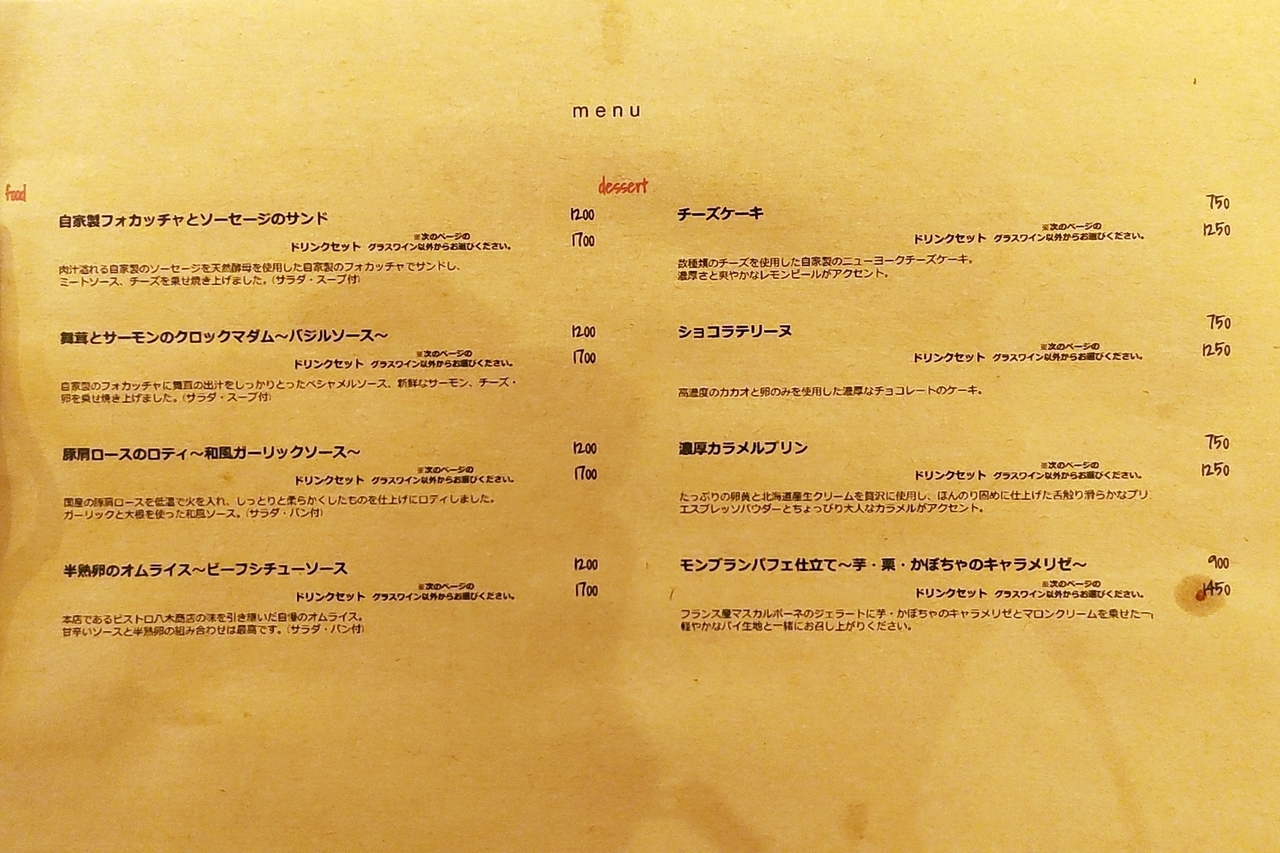 menu
food
自家製フォカッチャとソーセージのサンド 1200
※次のページの
ドリンクセット グラスワイン以外からお選びください。 1700
肉汁溢れる自家製のソーセージを天然酵母を使用した自家製のフォカッチャでサンドし、
ミートソース、チーズを乗せ焼き上げました。(サラダ・スープ付)
舞茸とサーモンのクロックマダム〜バジルソース〜 1200
※次のページの
ドリンクセット グラスワイン以外からお選びください。 1700
自家製のフォカッチャに舞茸の出汁をしっかりとったベシャメルソース、新鮮なサーモン、チーズ・
卵を乗せ焼き上げました。(サラダ・スープ付)
豚肩ロースのロティ〜和風ガーリックソース〜 1200
※次のページの
ドリンクセット グラスワイン以外からお選びください。 1700
国産の豚肩ロースを低温で火を入れ、しっとりと柔らかくしたものを仕上げにロティしました。
ガーリックと大根を使った和風ソース。(サラダ・パン付)
半熟卵のオムライス〜ビーフシチューソース 1200
※次のページの
ドリンクセット グラスワイン以外からお選びください。 1700
本店であるビストロ八木商店の味を引き継いだ自慢のオムライス。
甘辛いソースと半熟卵の組み合わせは最高です。(サラダ・パン付)
dessert
チーズケーキ 750
※次のページの
ドリンクセット グラスワイン以外からお選びください。 1250
数種類のチーズを使用した自家製のニューヨークチーズケーキ。
濃厚さと爽やかなレモンピールがアクセント。
ショコラテリーヌ 750
※次のページの
ドリンクセット グラスワイン以外からお選びください。 1250
高濃度のカカオと卵のみを使用した濃厚なチョコレートのケーキ。
濃厚カラメルプリン 750
※次のページの
ドリンクセット グラスワイン以外からお選びください。 1250
たっぷりの卵黄と北海道産生クリームを贅沢に使用し、ほんのり固めに仕上げた舌触り滑らかなプリ
エスプレッソパウダーとちょっぴり大人なカラメルがアクセント。
モンブランパフェ仕立て〜芋・栗・かぼちゃのキャラメリゼ〜 900
※次のページの
ドリンクセット グラスワイン以外からお選びください。 1450
フランス産マスカルポーネのジェラートに芋・かぼちゃのキャラメリゼとマロンクリームを乗せた
軽やかなパイ生地と一緒にお召し上がりください。